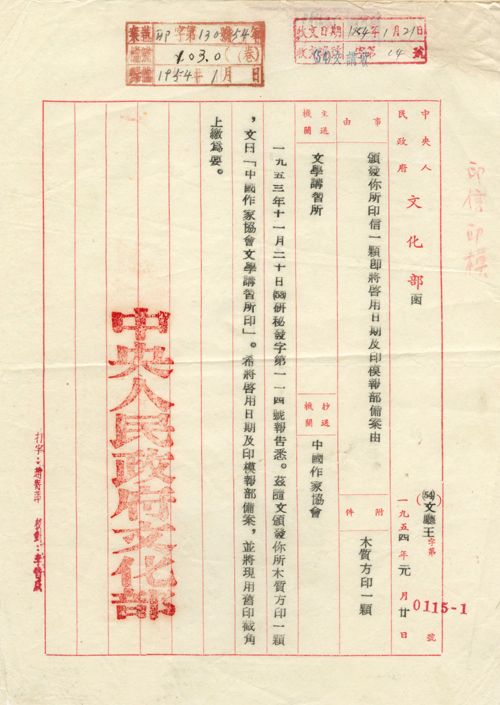 1954年1月21日
1030(卷)
1954年1月 日
印信印模
中央人民政府 文化部函
(54)文廳王字第0115-1號
一九五四年元月廿日
事由
頒發你所印信一顆即將啓用日期及印模報部備案由
附件
木質方印一顆
主送機關
文學講習所
抄送機關
中國作家協會
一九五三年十一月二十日(53)研秘發字第一一四號報告悉。茲隨文頒發你所木質方印一顆
，文曰「中國作家協會文學講習所印」。希將啓用日期及印模報部備案，並將現用舊印截角
上繳爲要。
中央人民政府文化部